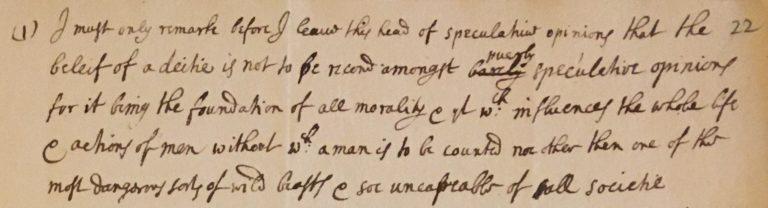 (1) I must only remark before I leave this head of speculative opinions that the 22
beleif of a deitie is not to be recond amongst barely purely speculative opinions
for it being the foundation of all morality & yt wch influences the whole life
& actions of men without wch a man is to be counted noe other then one of the
most dangerous sorts of wild beasts & soe uncapeable of all societie